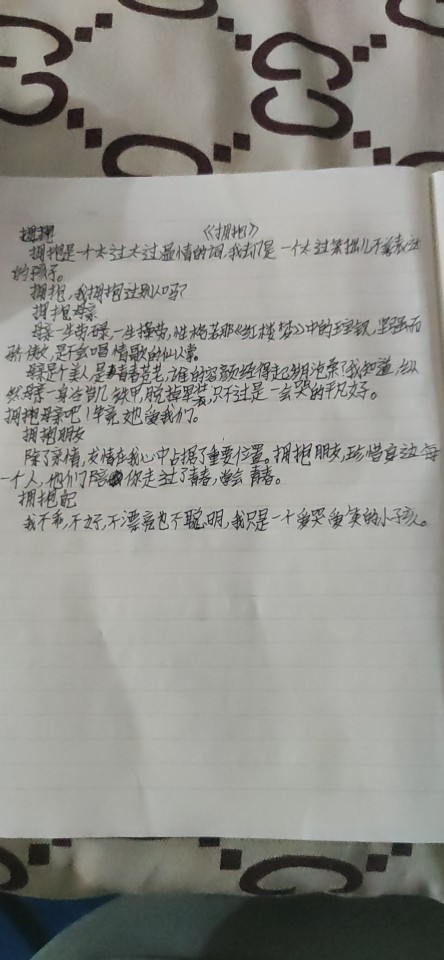 拥抱 《拥抱》
拥抱是一个太过太过温情的词,我却是一个太过笨拙几不善表达
的孩子。
拥抱,我拥抱过别人吗?
拥抱母亲
母亲一生劳碌,一生操劳,性格若那《红楼梦》中的王宝钏,坚强而
骄傲,是不会唱情歌的仙人掌。
母亲是个美人,是青春苍老,谁的容颜经得起沧桑?我知道,纵
然母亲一身铠甲,脱掉只不过是一玄哭的平凡女子。
拥抱母亲吧!毕竟,她爱我们。
拥抱朋友
除了亲情,友情在我心中占据了重要位置。拥抱朋友,珍惜身边每
一个人,他们陪你走过了青春,学会青春。
拥抱自己
我不乖,不好,不漂亮也不聪明,我只是一个爱哭爱笑的小孩。